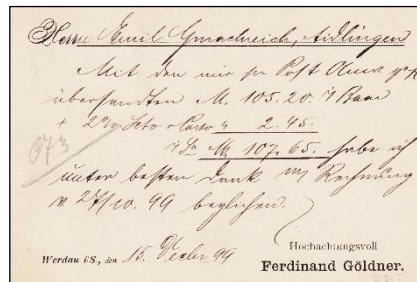 Herrn Emil Gmachreich, Aidlingen
Mit den mir pr Post
übersandten M. 105.20. Baar
+ 2% Scto + Porto " 2.45.
M 107.65. habe ich
unter besten Dank Rechnung
v 27/10. 99 beglichen.
673
Hochachtungsvoll
Werdau i/S., den 15. 99
Ferdinand Göldner.